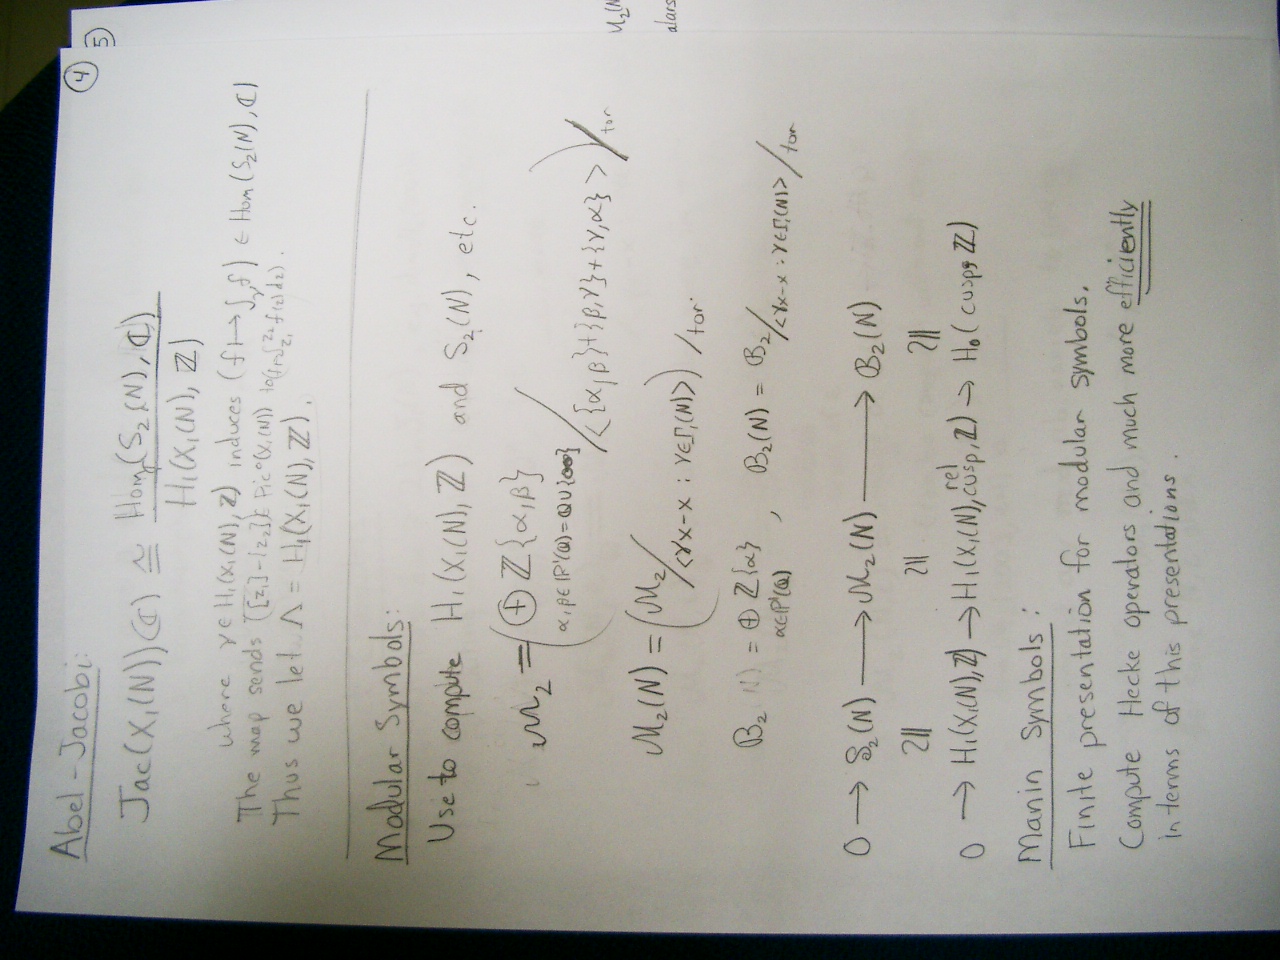 ④
Abel-Jacobi:
Jac(X₁(N))(ℂ) ≅ Hom(S₂(N), ℂ)
H₁(X₁(N), ℤ)
where γ∈H₁(X₁(N), ℤ) induces (f ↦ ∫_γ f) ∈ Hom(S₂(N), ℂ)
The map sends [z₁]-[z₂] ∈ Pic⁰(X₁(N)) to (f↦∫_{z₁}^{z₂} f(z)dz).
Thus we let Λ = H₁(X₁(N), ℤ).
Modular Symbols:
Use to compute H₁(X₁(N), ℤ) and S₂(N), etc.
ℳ₂ = (⊕ ℤ{α,β}) / <{α,β}+{β,γ}+{γ,α}> / tor
α,β∈ℙ¹(ℚ)=ℚ∪{∞}
ℳ₂(N) = (ℳ₂/<γx-x : γ∈Γ₁(N)>) / tor.
B₂ = ⊕ ℤ{α} , B₂(N) = B₂/<γx-x : γ∈Γ₁(N)> / tor
α∈ℙ¹(ℚ)
0 → S₂(N) → ℳ₂(N) → B₂(N)
≅ ≅ ≅
0 → H₁(X₁(N), ℤ) → H₁(X₁(N), cusp, ℤ) → H₀(cusp, ℤ)
rel
Manin Symbols:
Finite presentation for modular symbols.
Compute Hecke operators and much more efficiently
in terms of this presentations.
⑤